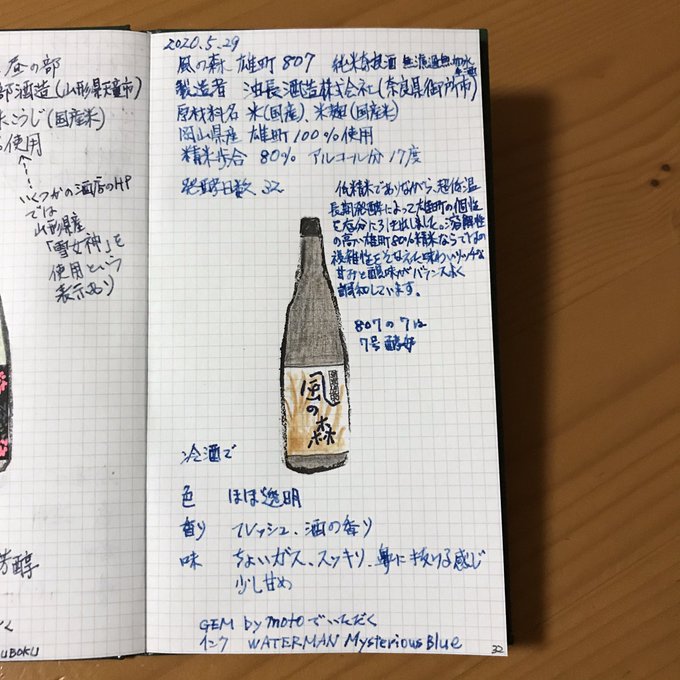 昼の部
部酒造(山形県天童市)
米こうじ(国産米)
使用
いくつかの酒店のHP
では
山形県産
「雪女神」を
使用という
表示あり
芳醇
UBOKU
2020.5.29
風の森 雄町 807 純米奈良酒 無濾過無加水
製造者 油長酒造株式会社(奈良県御所市)
原材料名 米(国産)、米麹(国産米)
岡山県産 雄町100%使用
精米歩合 80% アルコール分 17度
発酵日数 32
低精米でありながら、超低温
長期発酵によって雄町の個性
を充分に引き出しました。溶解性
の高い雄町80%精米ならではの
複雑性をそなえた味わい。リッチな
甘みと酸味がバランス良く
調和しています。
807の7は
7号酵母
風の森
冷酒で
色 ほぼ透明
香り フレッシュ、酒の香り
味 ちょいガス、スッキリ、鼻に抜ける感じ
少し甘め
GEM by motoでいただく
インク WATERMAN Mysterious Blue
32